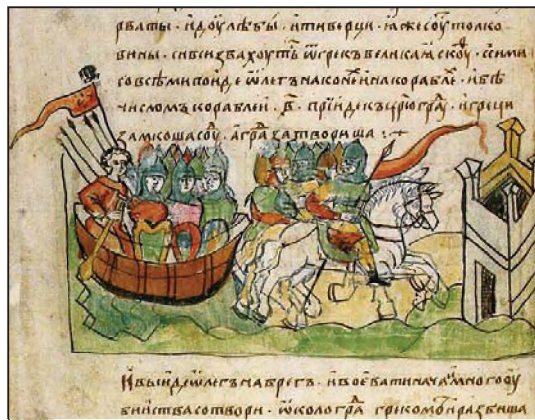 рваты · идоулѣбы · итиверци · иже соутолко
вины · сивсизвахоуть ѿгрек великаꙗ скоуⷴ · сими
совсѣмипоиде ѡлегънаконеинакорабле · ибѣ
числомъкораблеи · в҃ · прїидекъцр҃югра · игреци
замкошасоу · аграⷣзатвориша :~
Ивыидеѡлегънабрегъ · ивоеватинача многооу
биистваствори · ѡкологра грекомъ иразбиша